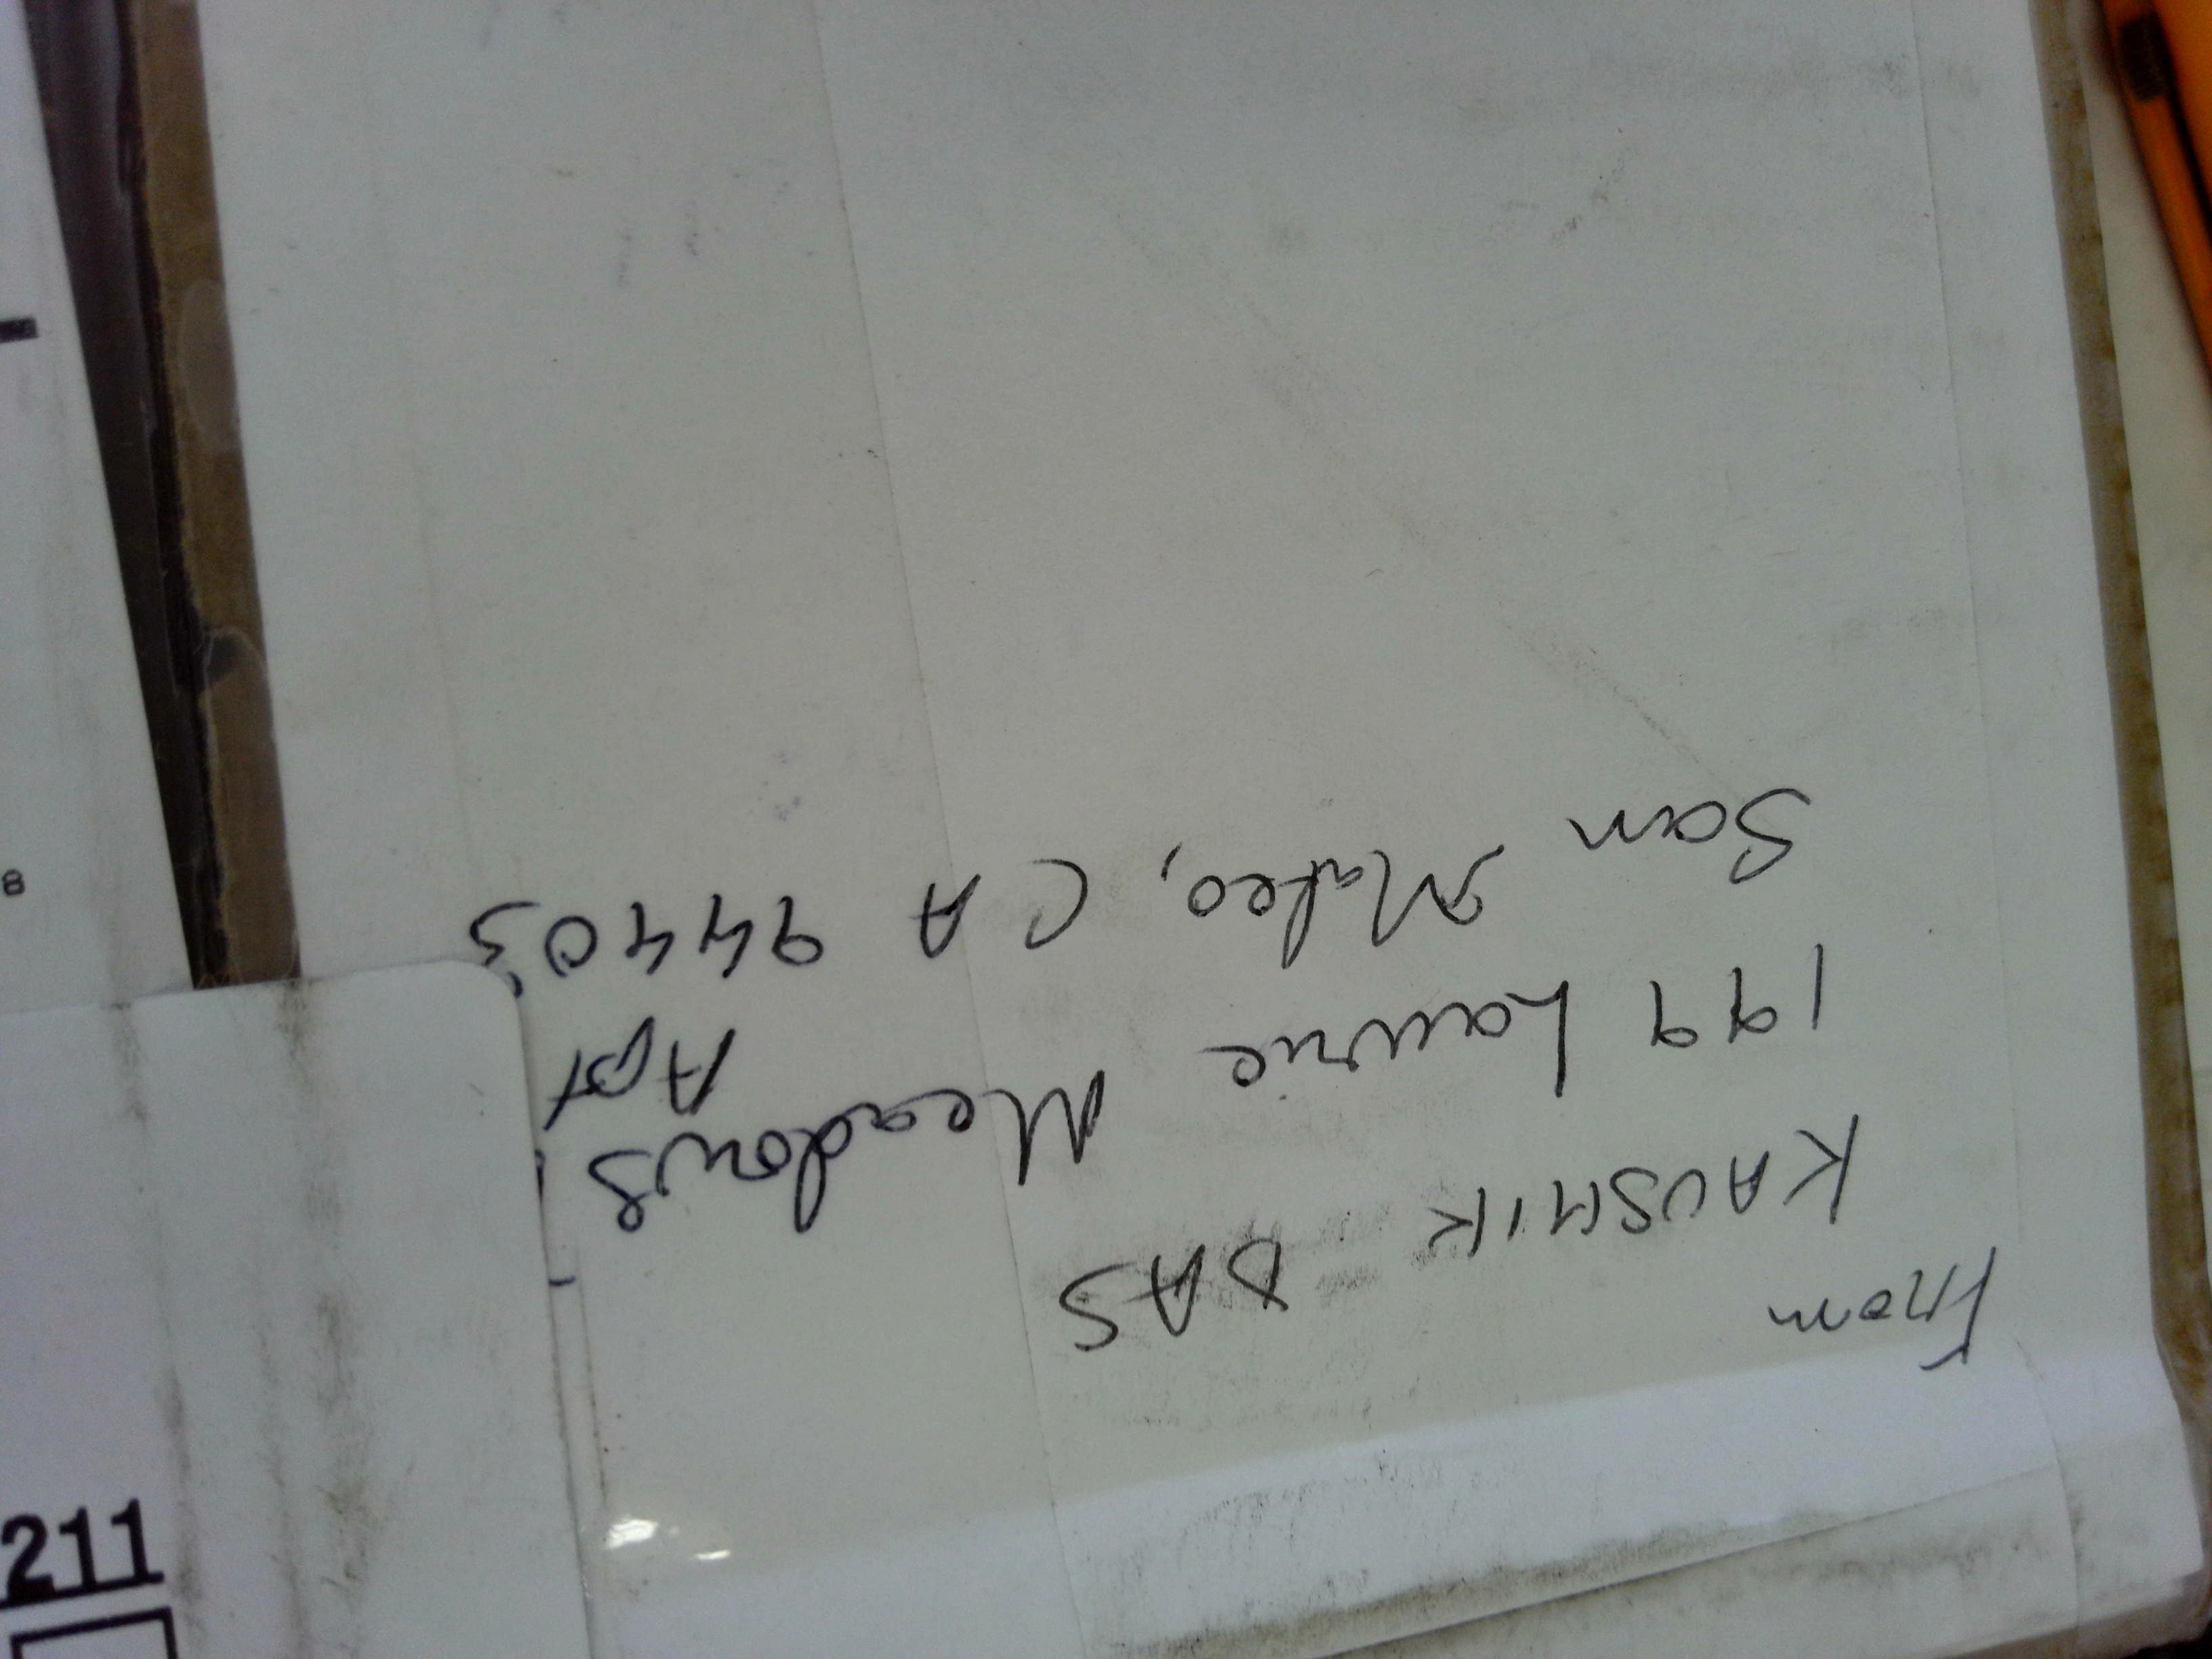 From
KAUSHIK DAS
199 Laurie Meadows,
Apt
San Mateo, CA 94403
211
8